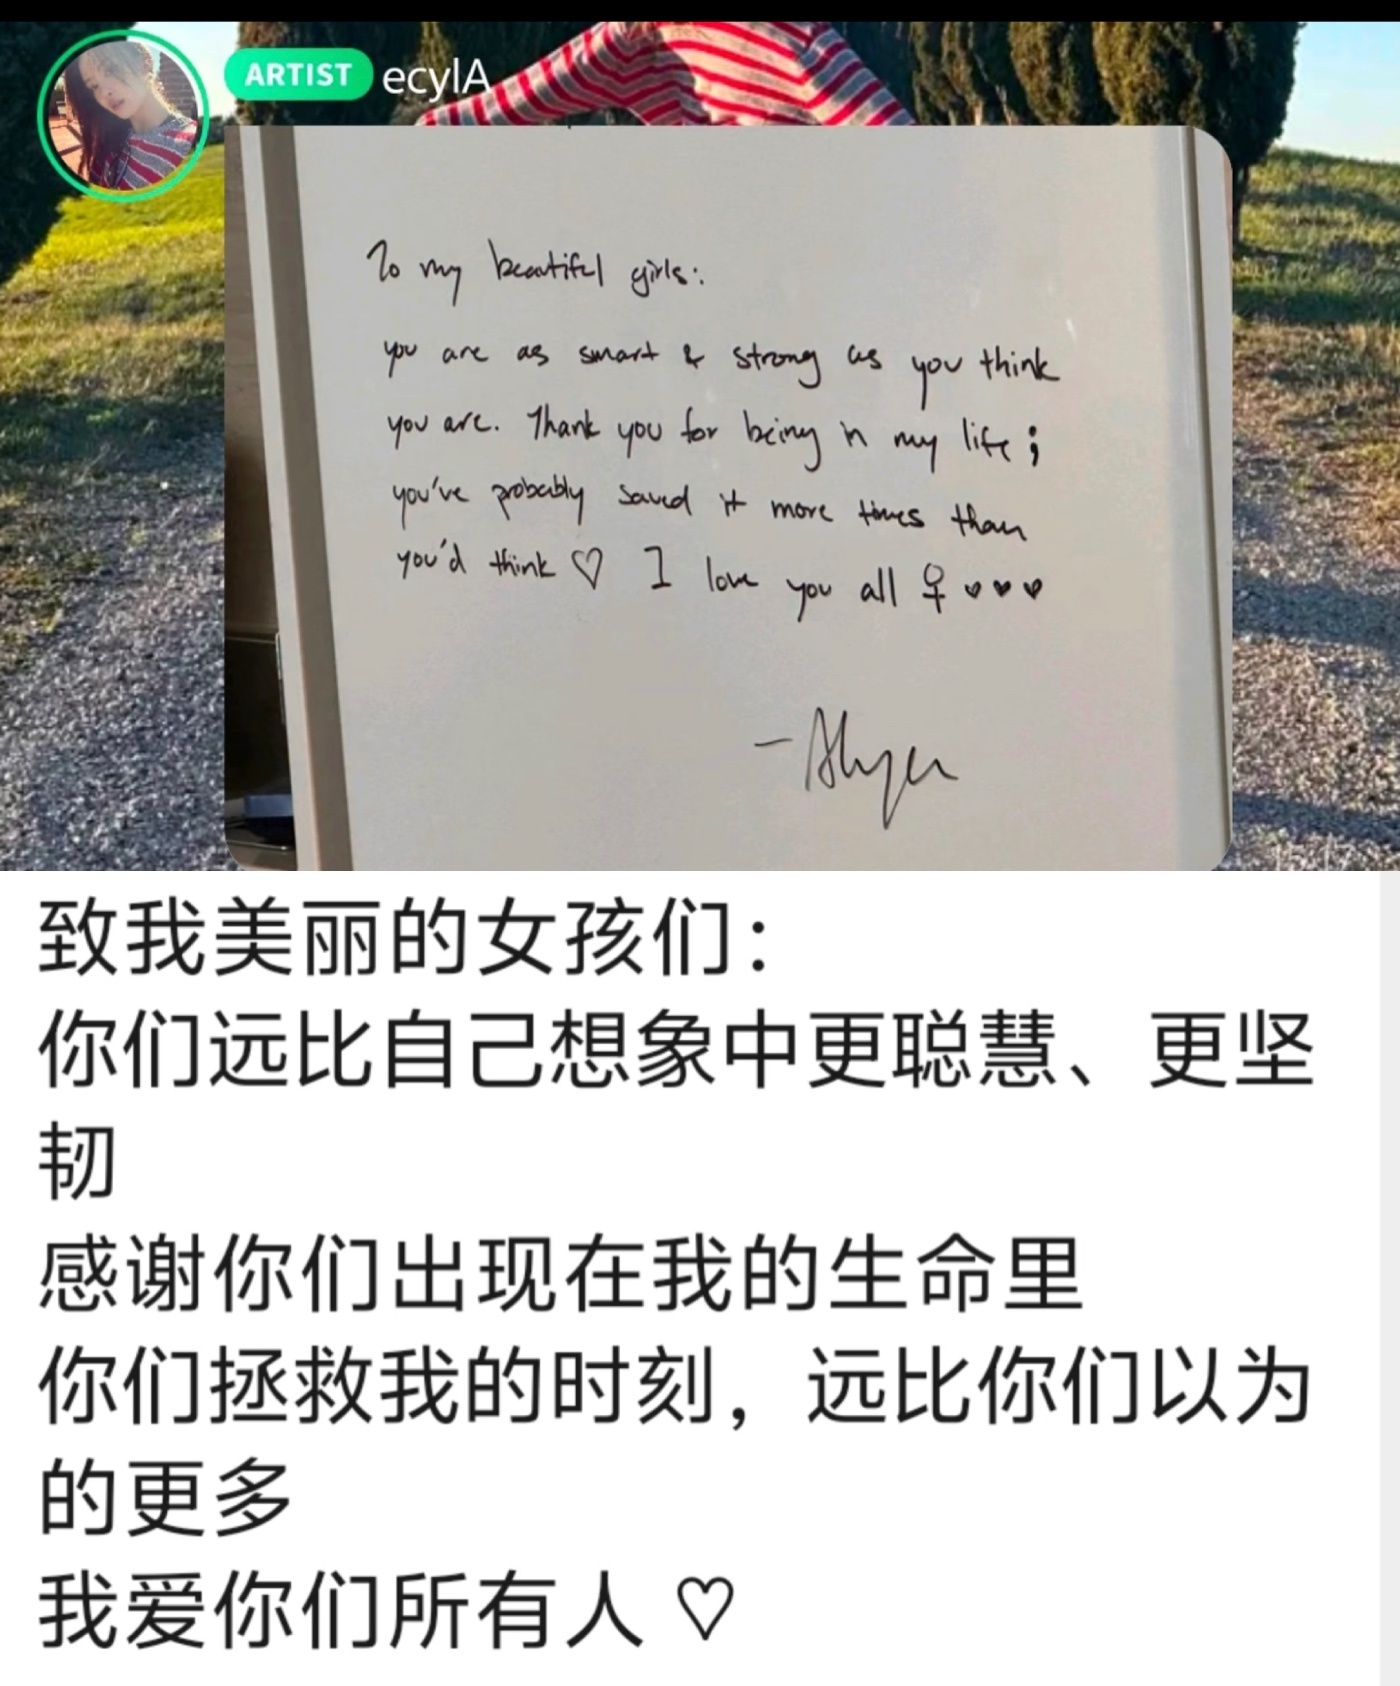 ARTIST ecylA
To my beautiful girls:
you are as smart & strong as you think
you are. Thank you for being in my life;
you've probably saved it more times than
you'd think ♡ I love you all ♀ ♥ ♥ ♥
致我美丽的女孩们：
你们远比自己想象中更聪慧、更坚
韧
感谢你们出现在我的生命里
你们拯救我的时刻，远比你们以为
的更多
我爱你们所有人 ♡